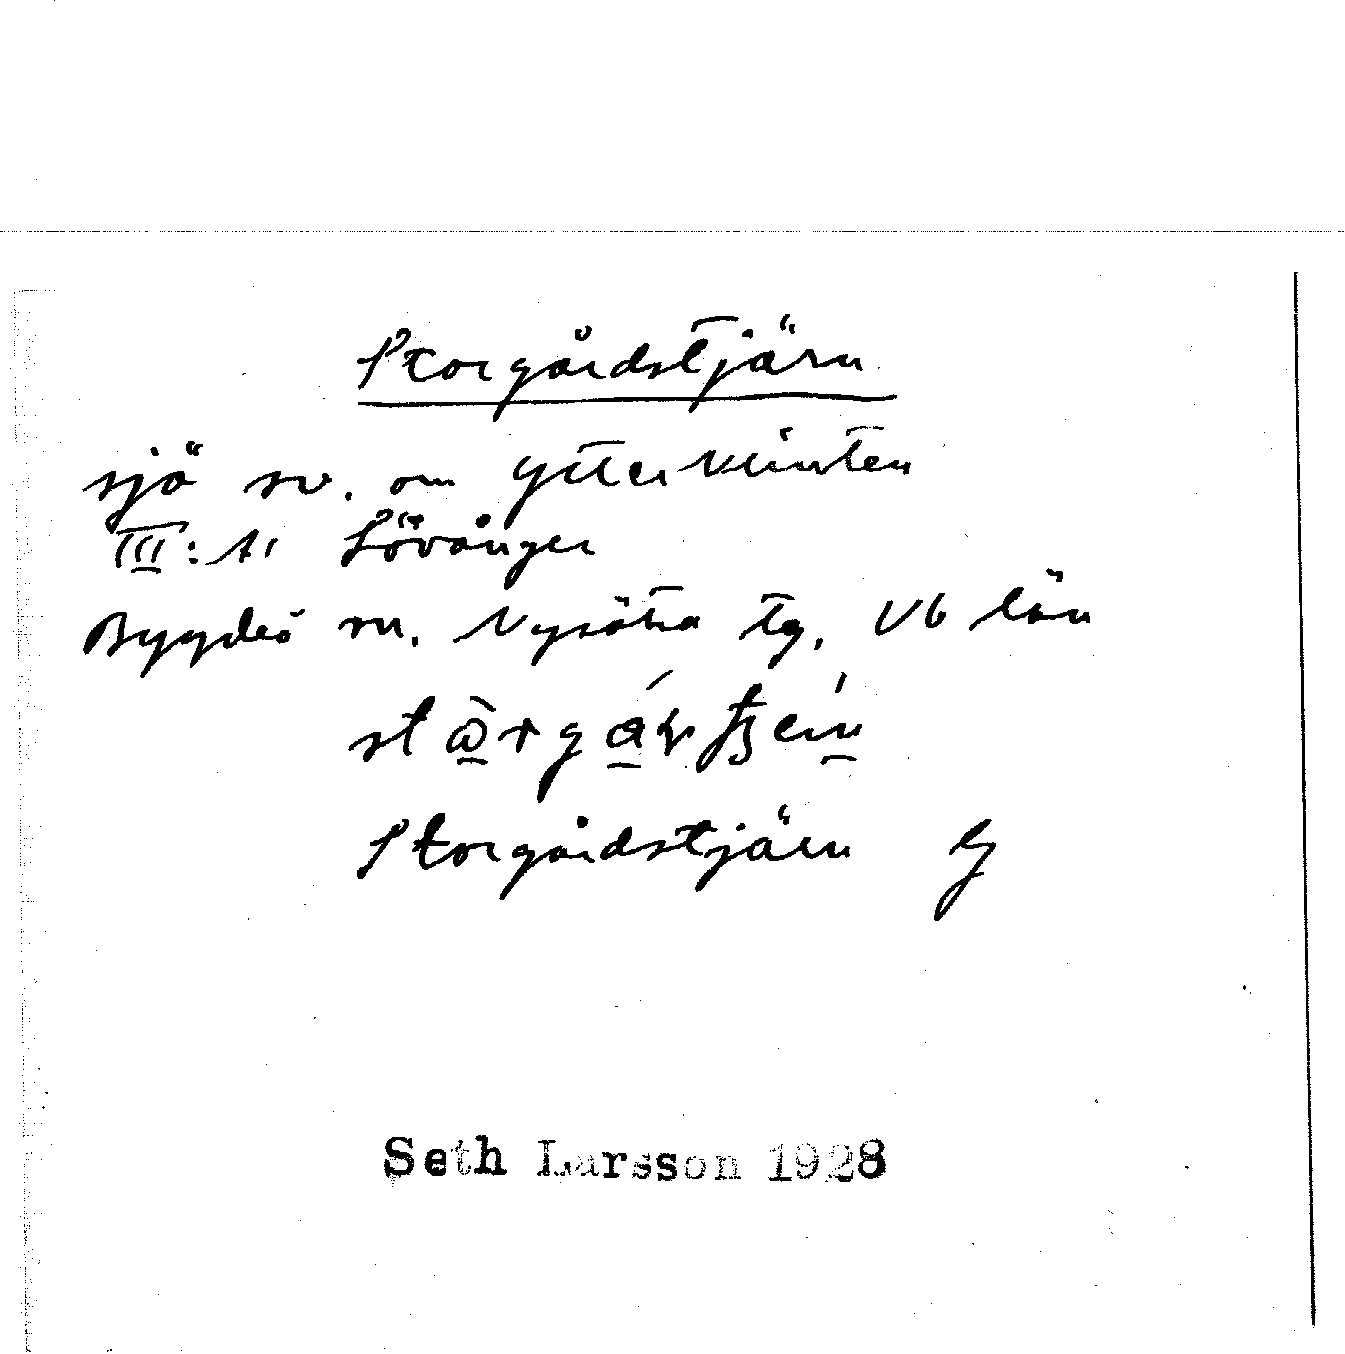 Storgårdstjärn
sjö sv. om Ytterklinten
III:A1 Lövånger
Bygdeå sn. Nysätra tg, Vb län
Storgårdstjärn G
Seth Larsson 1928